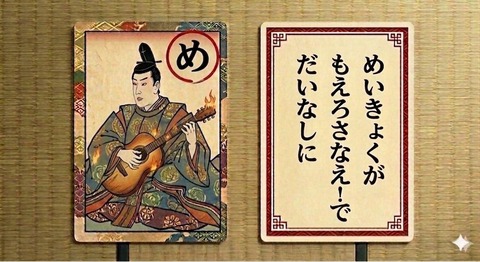 め
めいきょくが
もえろさなえ!で
だいなしに